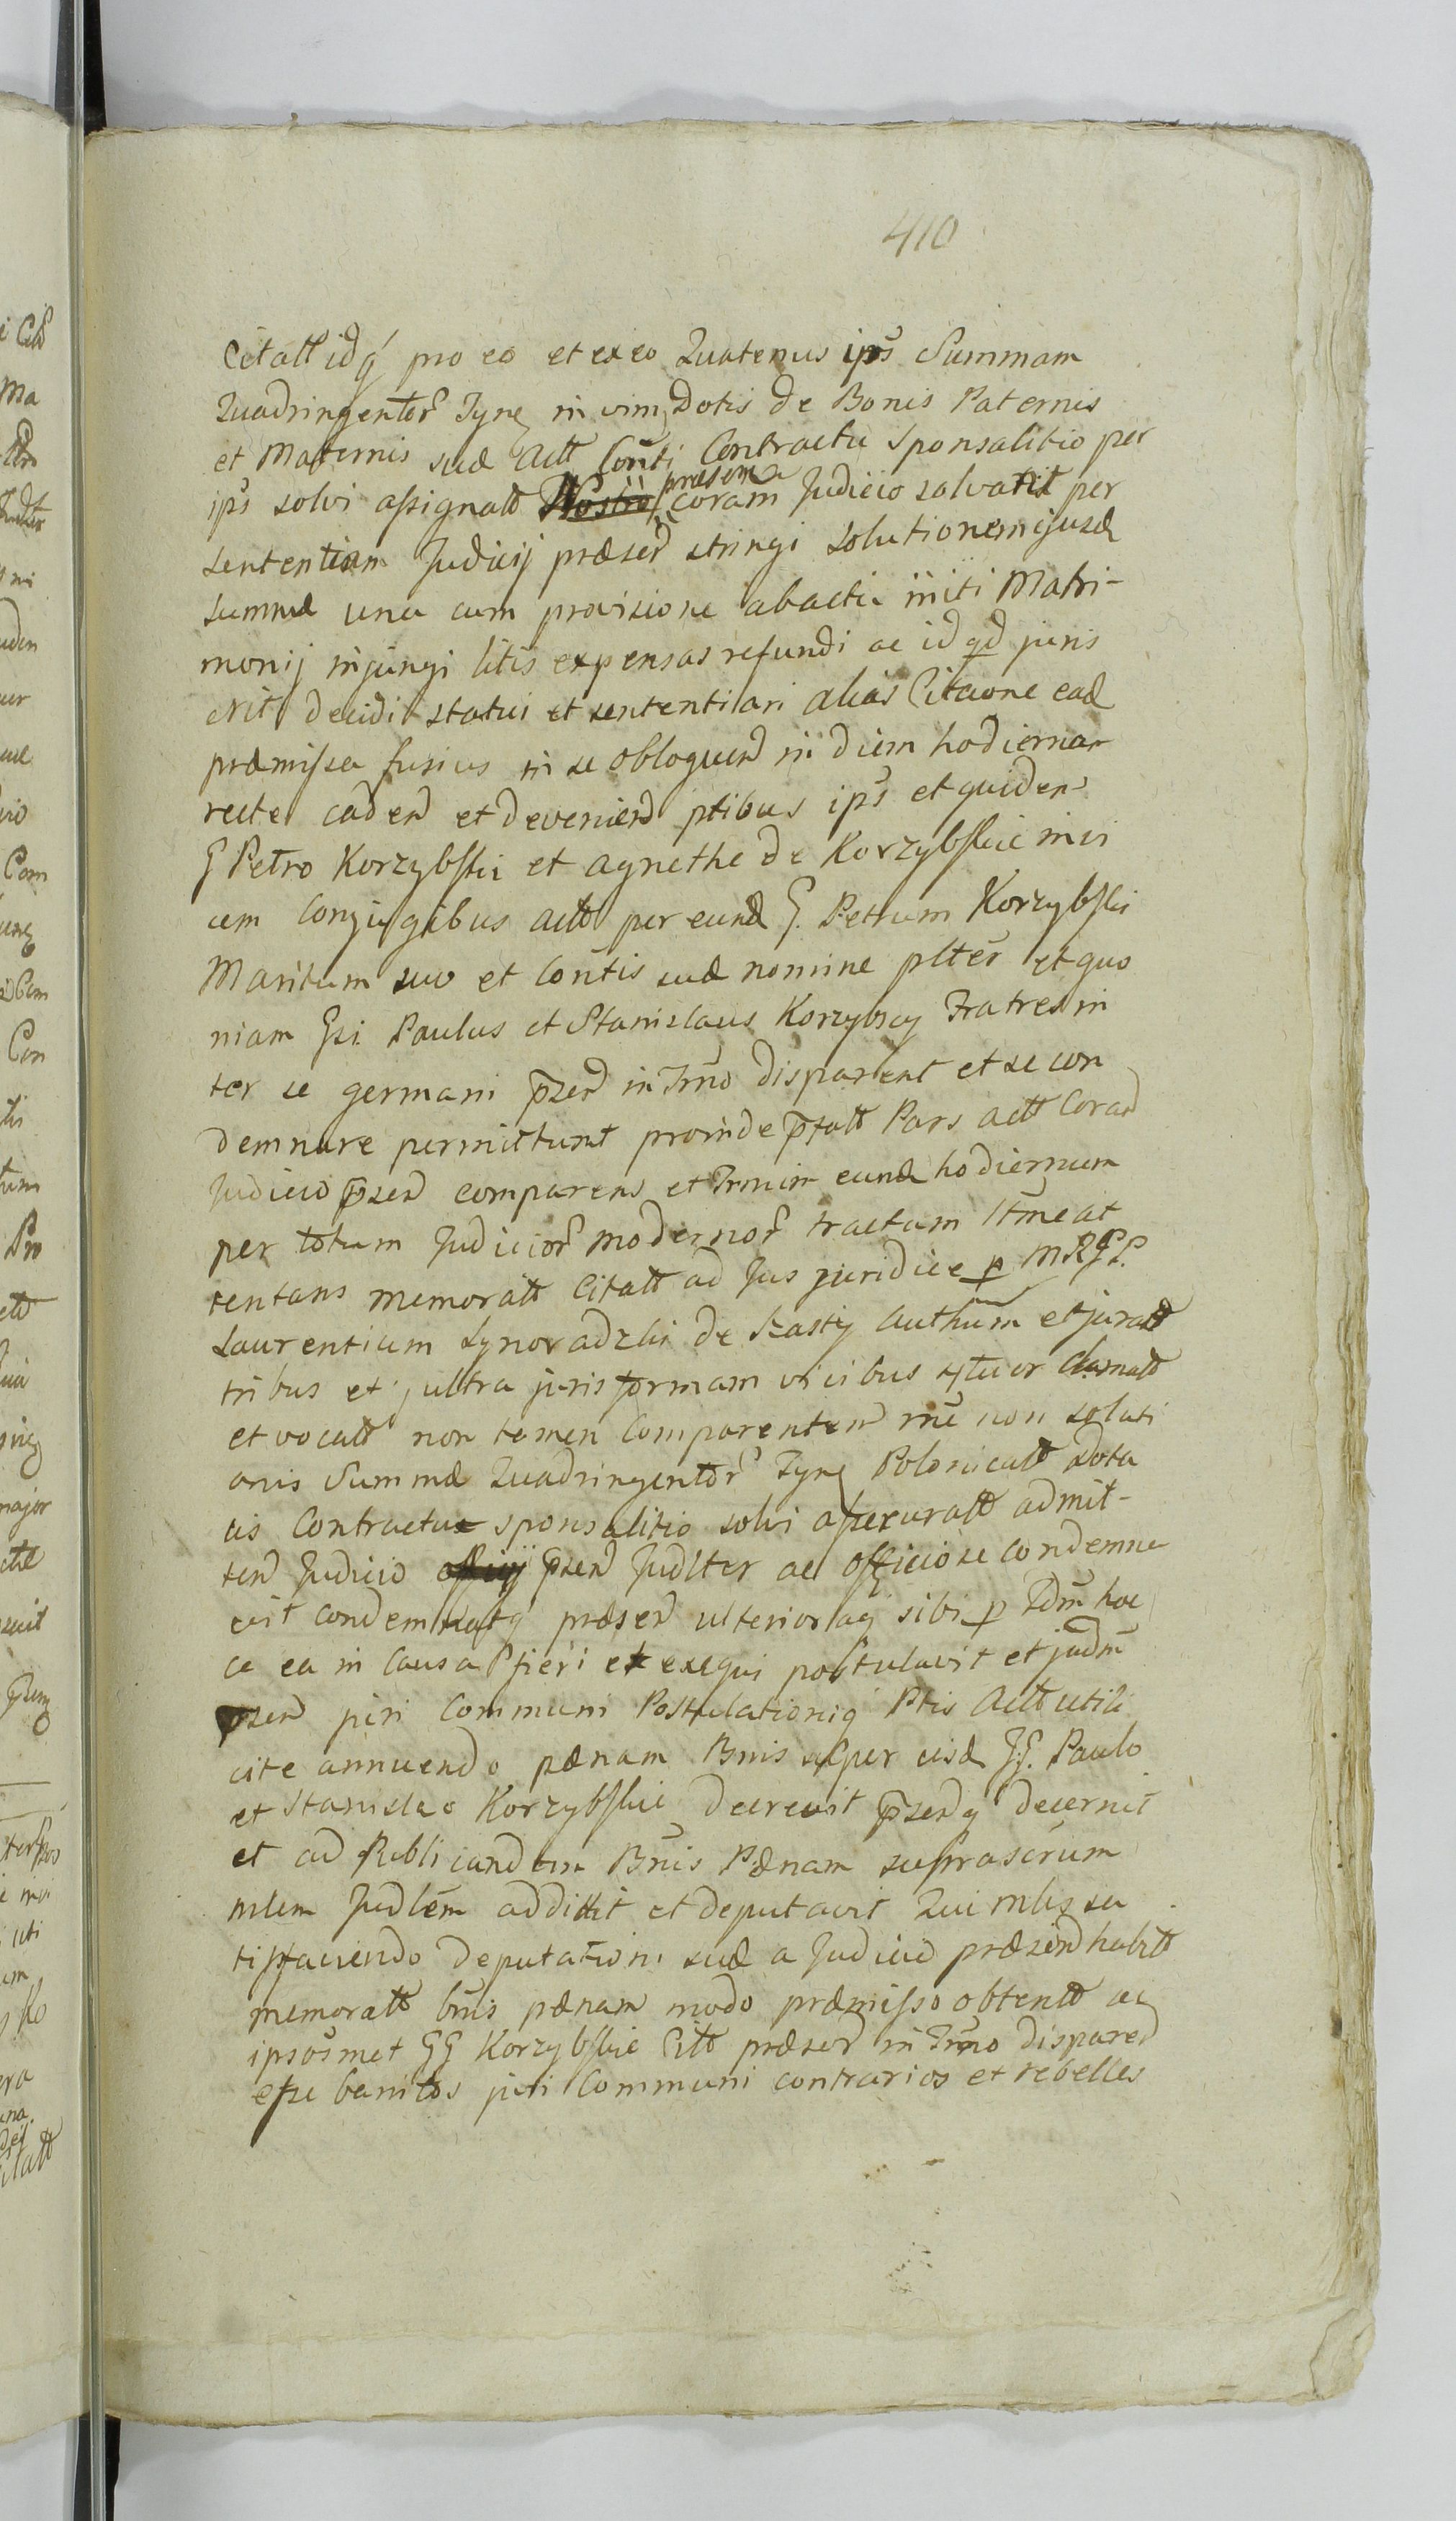 410
Citatt idq́ pro eo et ex eo Quatenus ips Summam
Quadringentor Tynf in vim Dotis de Bonis Paternis
et Maternis suæ Actt Conti Contractu Sponsalitio per
ips solvi assignatt Nostro præsen coram Judicio solvatit per
sententiam Judicij præsen stringi solutionem ejusd
summæ una cum provisione ab actu initi Matri-
monij injungi litis expensas refundi ac id qd juris
erit decidi statui et sententiari alias Citaone ead
præmissa fusius in se obloquen in diem hodiernam
recte caden et devenien ptibus ips et quidem
G Petro Korzybski et Agnethe de Korzybskie invi
cem Conjugibus Actt per eund G. Petrum Korzybski
Maritum suo et Contis suæ nomine plter et quo
niam Gsi Paulus et Stanislaus Korzybscy Fratres in
ter se germani psen in Trno disparent et se con
demnare permittunt proinde pfatt Pars Actt Coram
Judicio psen comparens et Trmin eund hodiernum
per totum Judicior modernor tractum ltme at
tentans memoratt Citatt ad Jus juridice p MRGP.
Laurentium Lynoradzki de Szasty Authum et juratt
tribus et ultra juris formam vicibus qtuor clamatt
et vocatt non tamen Comparenten rne non soluti
onis Summæ Quadringentor Tynf Polonicatt Dota
lis Contractu sponsalitio solvi assecuratt admit-
ten Judicio officij psen Judlter ac officiose condemna
vit condemnatq præsen ulterioraq sibi p Idm hac
ce ea in Causa fieri et exequi postulavit et judm
psen juri Communi Postulationiq Ptis Actt utili
cite annuendo pænam Bnis super eisd GG. Paulo
et Stanislao Korzybskie decrevit psenq decernit
et ad Publicandam Bnis Pænam suprascrum
mlem Judlem addidit et deputavit Qui mlis sa
tisfaciendo deputationi suæ a Judicio præsen habitt
memoratt bnis pænam modo præmisso obtentt ac
ipsosmet GG Korzybskie Citt præsen in Trno disparen
esse banitos juri Communi contrarios et rebelles